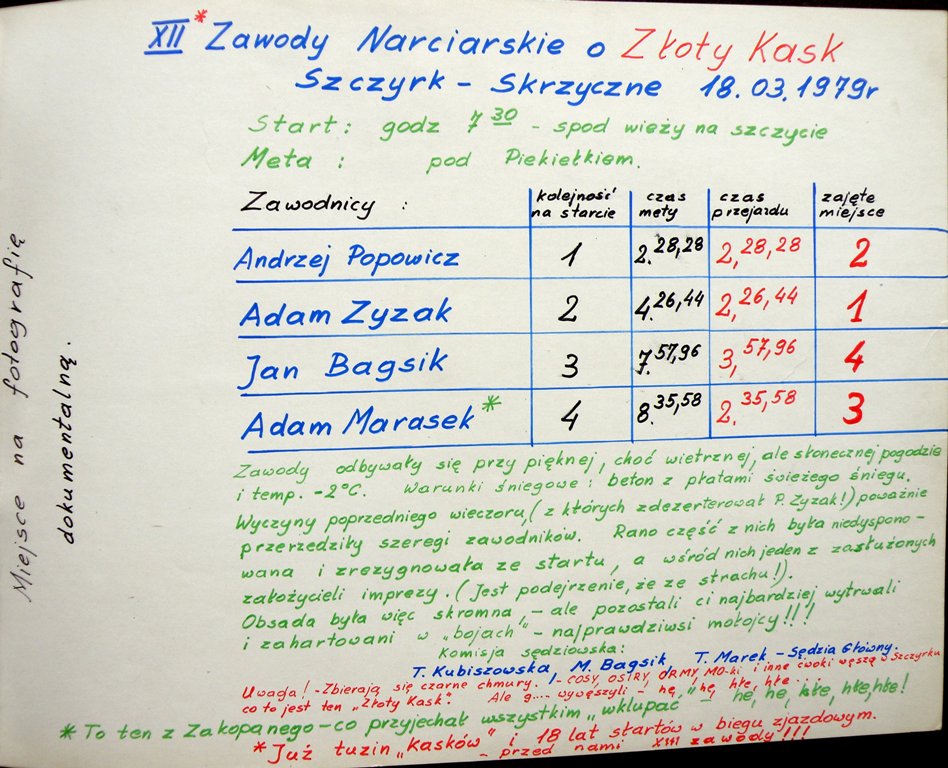 XII * Zawody Narciarskie o Złoty Kask
Szczyrk - Skrzyczne 18.03.1979r
Start: godz 7 30 - spod wieży na szczycie
Meta : pod Piekiełkiem.
Zawodnicy : kolejność na starcie czas mety czas przejazdu zajęte miejsce
Andrzej Popowicz 1 2.28,28 2,28,28 2
Adam Zyzak 2 4.26,44 2,26,44 1
Jan Bagsik 3 7.57,96 3,57,96 4
Adam Marasek * 4 8.35,58 2.35,58 3
Zawody odbywały się przy pięknej, choć wietrznej, ale słonecznej pogodzie
i temp. -2°C. Warunki śniegowe: beton z płatami świeżego śniegu.
Wyczyny poprzedniego wieczoru, (z których zdezerterował P. Zyzak!) poważnie
przerzedziły szeregi zawodników. Rano część z nich była niedyspono-
wana i zrezygnowała ze startu, a wśród nich jeden z zasłużonych
założycieli imprezy. (Jest podejrzenie, że ze strachu!).
Obsada była więc skromna, - ale pozostali ci najbardziej wytrwali
i zahartowani w „bojach" - najprawdziwsi mołojcy!!!
Komisja sędziowska:
T. Kubiszowska, M. Bagsik, T. Marek - Sędzia Główny.
Uwaga! - Zbierają się czarne chmury. !- COSY, OSIRY, ORMY, MO-ki i inne ćwoki węszą w Szczyrku
co to jest ten „Złoty Kask". Ale g.... wywęszyli - hę, hę, hłe, hłe...
* To ten z Zakopanego - co przyjechał wszystkim „wklupać" - he, he, hłe, hłe, hłe!
* Już tuzin „Kasków" i 18 lat startów w biegu zjazdowym.
- przed nami XIII zawody!!!
Miejsce na fotografię
dokumentalną.